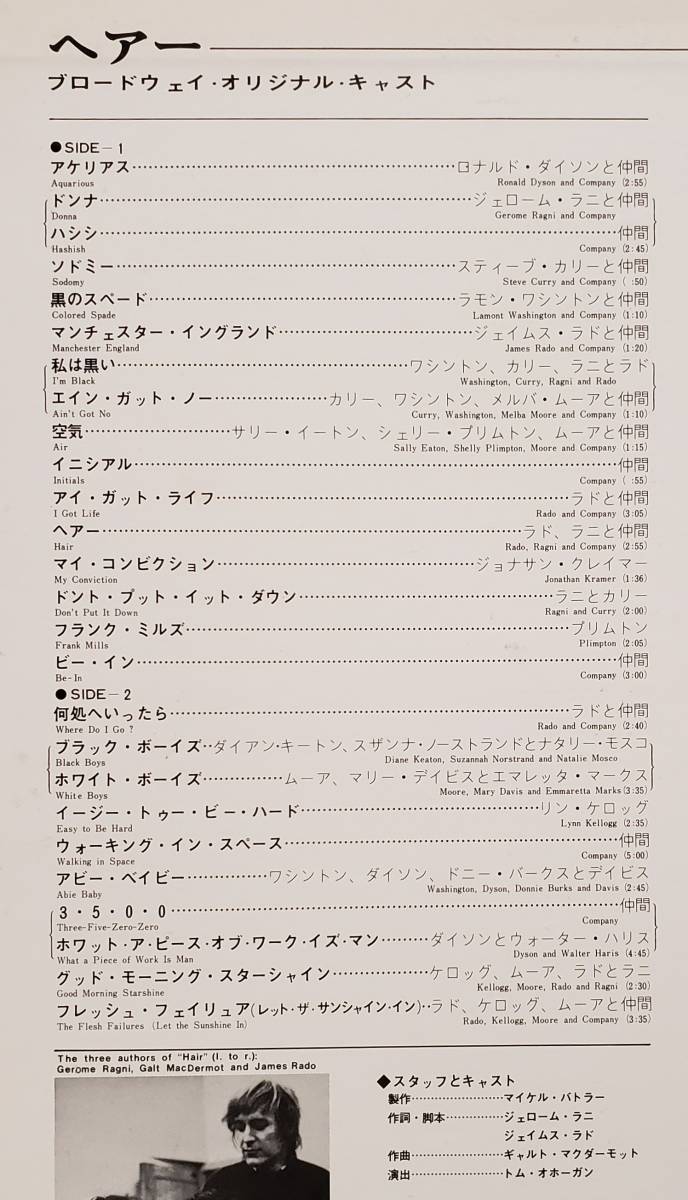 ヘアー
ブロードウェイ・オリジナル・キャスト
●SIDE－1
アケリアス……ロナルド・ダイソンと仲間
Aquarious Ronald Dyson and Company (2:55)
ドンナ……ジェローム・ラニと仲間
Donna Gerome Ragni and Company
ハシシ……仲間
Hashish Company (2:45)
ソドミー……スティーブ・カリーと仲間
Sodomy Steve Curry and Company ( :50)
黒のスペード……ラモン・ワシントンと仲間
Colored Spade Lamont Washington and Company (1:10)
マンチェスター・イングランド……ジェイムス・ラドと仲間
Manchester England James Rado and Company (1:20)
私は黒い……ワシントン、カリー、ラニとラド
I'm Black Washington, Curry, Ragni and Rado
エイン・ガット・ノー……カリー、ワシントン、メルバ・ムーアと仲間
Ain't Got No Curry, Washington, Melba Moore and Company (1:10)
空気……サリー・イートン、シェリー・プリムトン、ムーアと仲間
Air Sally Eaton, Shelly Plimpton, Moore and Company (1:15)
イニシアル……仲間
Initials Company ( :55)
アイ・ガット・ライフ……ラドと仲間
I Got Life Rado and Company (3:05)
ヘアー……ラド、ラニと仲間
Hair Rado, Ragni and Company (2:55)
マイ・コンビクション……ジョナサン・クレイマー
My Conviction Jonathan Kramer (1:36)
ドント・プット・イット・ダウン……ラニとカリー
Don't Put It Down Ragni and Curry (2:00)
フランク・ミルズ……プリムトン
Frank Mills Plimpton (2:05)
ビー・イン……仲間
Be-In Company (3:00)
●SIDE－2
何処へいったら……ラドと仲間
Where Do I Go ? Rado and Company (2:40)
ブラック・ボーイズ‥ダイアン・キートン、スザンナ・ノーストランドとナタリー・モスコ
Black Boys Diane Keaton, Suzannah Norstrand and Natalie Mosco
ホワイト・ボーイズ……ムーア、マリー・デイビスとエマレッタ・マークス
White Boys Moore, Mary Davis and Emmaretta Marks (3:35)
イージー・トゥー・ビー・ハード……リン・ケロッグ
Easy to Be Hard Lynn Kellogg (2:35)
ウォーキング・イン・スペース……仲間
Walking in Space Company (5:00)
アビー・ベイビー……ワシントン、ダイソン、ドニー・バークスとデイビス
Abie Baby Washington, Dyson, Donnie Burks and Davis (2:45)
3・5・0・0……仲間
Three-Five-Zero-Zero Company
ホワット・ア・ピース・オブ・ワーク・イズ・マン……ダイソンとウォーター・ハリス
What a Piece of Work Is Man Dyson and Walter Haris (4:45)
グッド・モーニング・スターシャイン……ケロッグ、ムーア、ラドとラニ
Good Morning Starshine Kellogg, Moore, Rado and Ragni (2:30)
フレッシュ・フェイリュア(レット・ザ・サンシャイン・イン)‥ラド、ケロッグ、ムーアと仲間
The Flesh Failures (Let the Sunshine In) Rado, Kellogg, Moore and Company (3:35)
The three authors of "Hair" (l. to r.):
Gerome Ragni, Galt MacDermot and James Rado
◆スタッフとキャスト
製作……マイケル・バトラー
作詞・脚本……ジェローム・ラニ
ジェイムス・ラド
作曲……ギャルト・マクダーモット
演出……トム・オホーガン